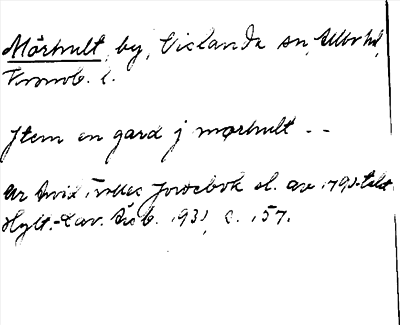 Mörhult, by, Vislanda sn, Allbo hd,
Kronob. l.
Jtem en gard j mørhult --
ur Arvid Trolles Jordebok sl. av 1498-talet
Hylt.-Cav. Årsb. 1931, s. 157.